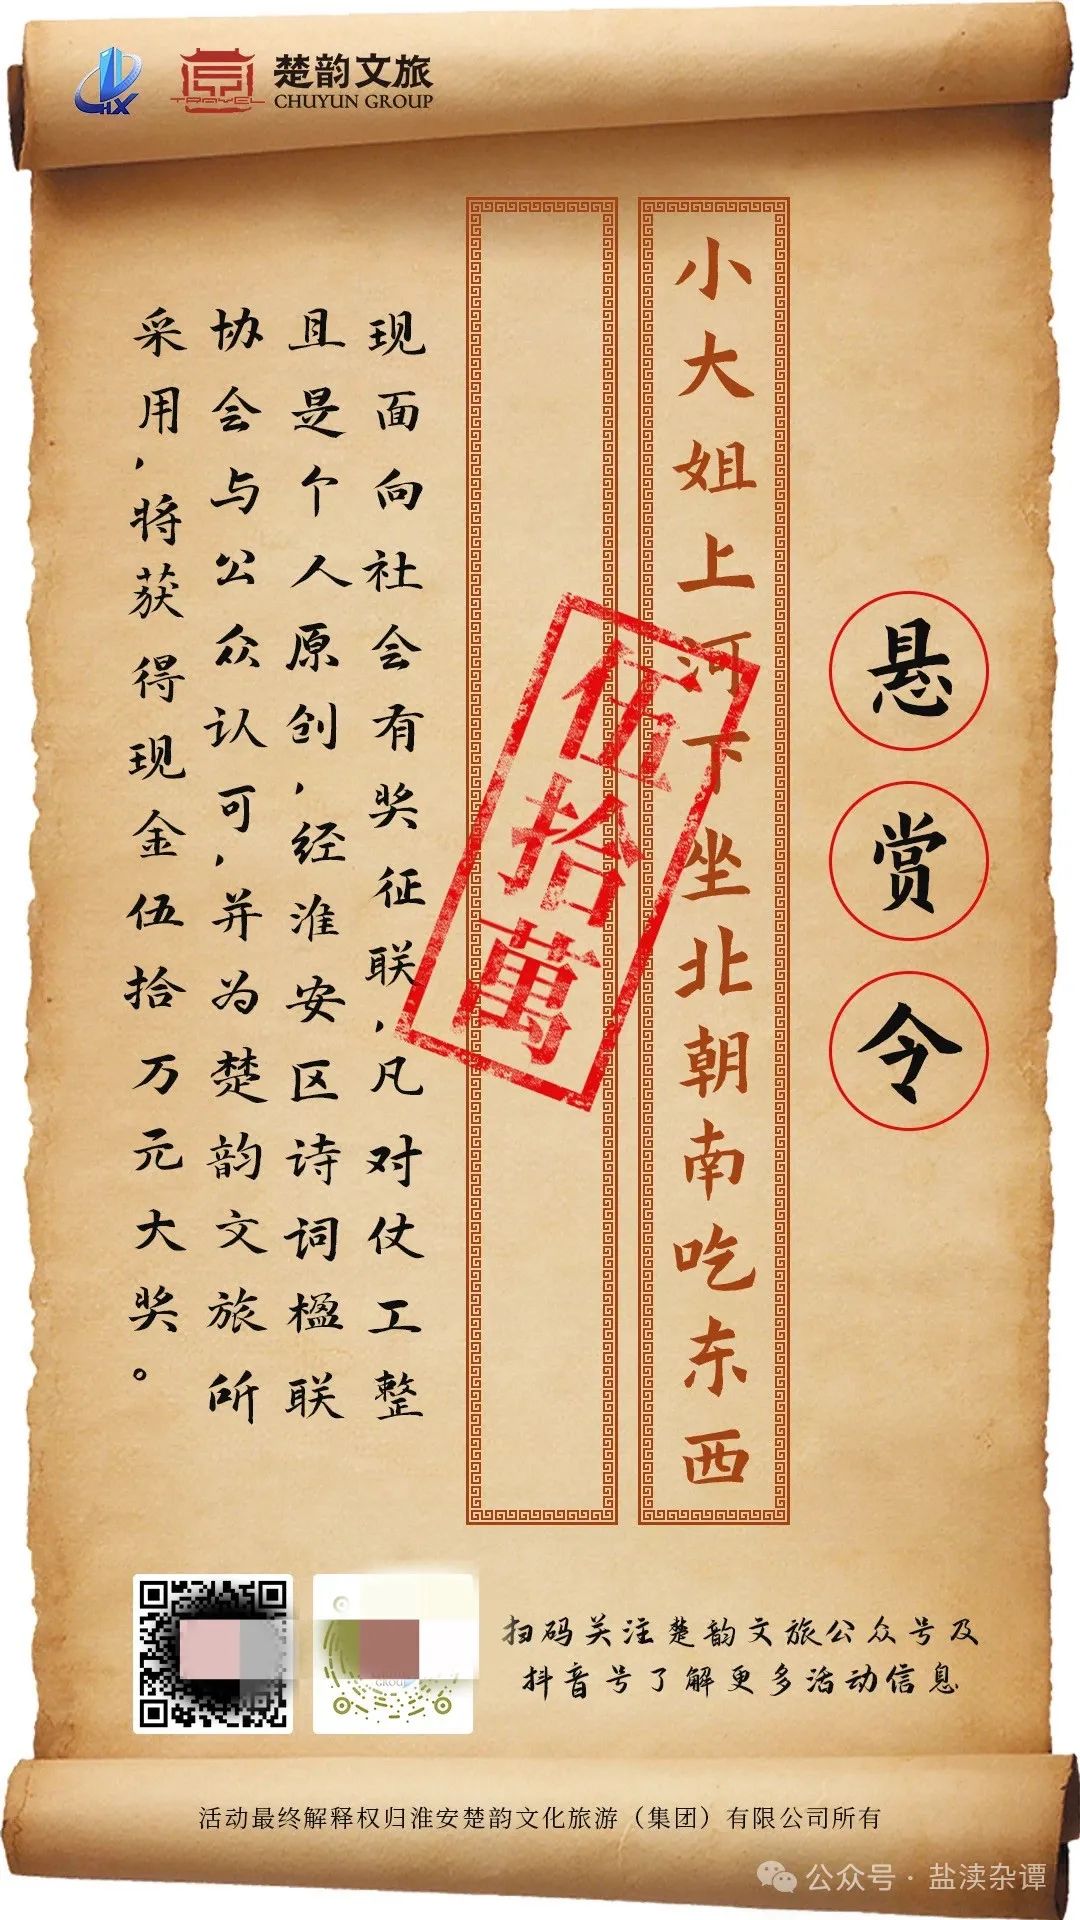 HX
TRAVEL
楚韵文旅
CHUYUN GROUP
悬赏令
小大姐上河下坐北朝南吃东西
伍拾萬
现面向社会有奖征联，凡对仗工整
且是个人原创，经淮安区诗词楹联
协会与公众认可，并为楚韵文旅所
采用，将获得现金伍拾万元大奖。
扫码关注楚韵文旅公众号及
抖音号了解更多活动信息
活动最终解释权归淮安楚韵文化旅游（集团）有限公司所有
公众号·盐渎杂谭